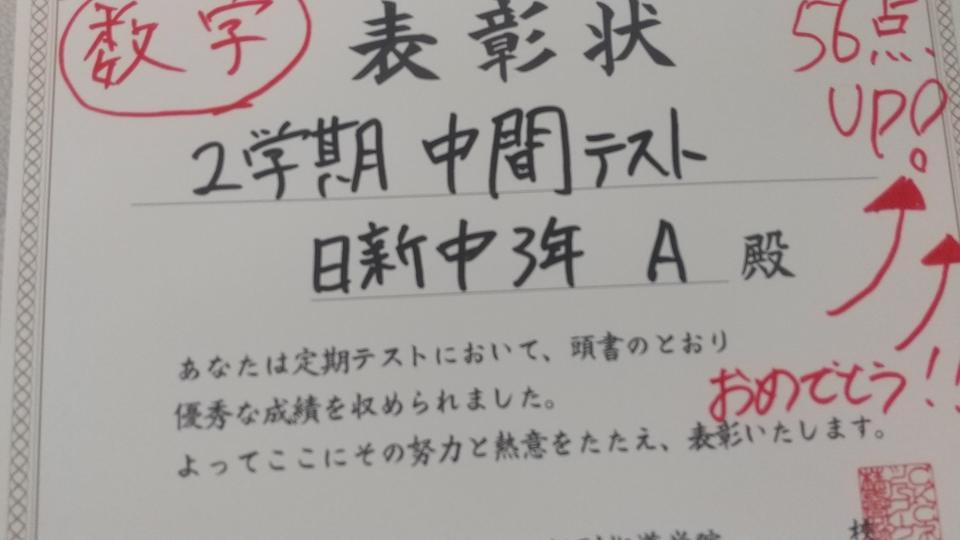 数字
表彰状
56点
UP!
2学期 中間テスト
日新中3年 A 殿
あなたは定期テストにおいて、頭書のとおり
優秀な成績を収められました。
よってここにその努力と熱意をたたえ、表彰いたします。
おめでとう!!